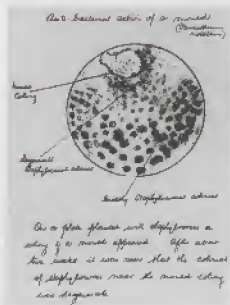 Anti-bacterial action of a mould
(Penicillium
notatum)
Mould
Colony
Staphylococcal colonies
Healthy Staphylococcal colonies
On a plate planted with staphylococci a
colony of a mould appeared. After about
two weeks it was seen that the colonies
of staphylococci near the mould colony
were degenerate